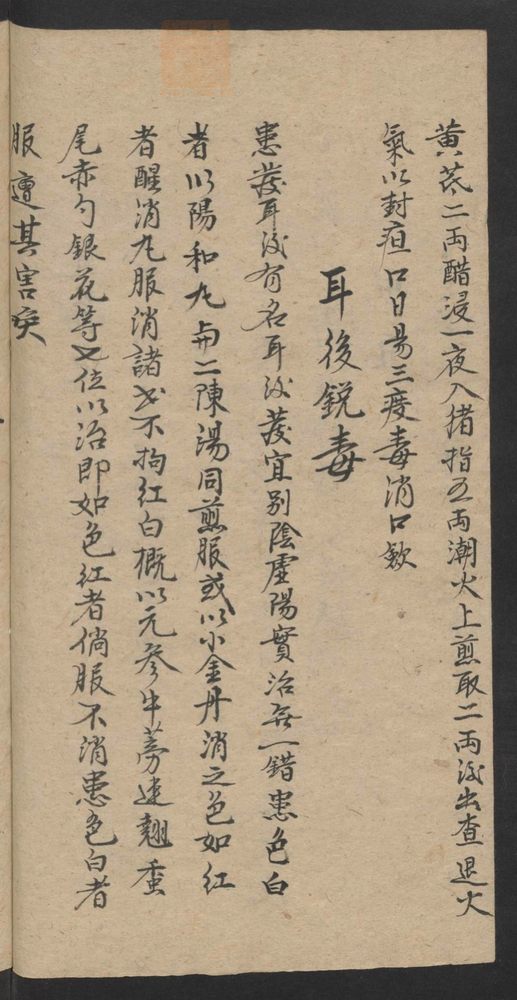 黄芪二両醋浸一夜入猪指五両潮火上煎取二両後出查退火
氣以封疽口日易三度毒消口歛
耳後銳毒
患發耳後有名耳後發宜别陰虛陽實治無一錯患色白
者以陽和丸与二陳湯同煎服或以小金丹消之色如紅
者醒消丸服消諸書不拘紅白概以元參牛蒡連翹蚤
尾赤勺銀花等位以治即如色紅者倘服不消患色白者
服遭其害矣